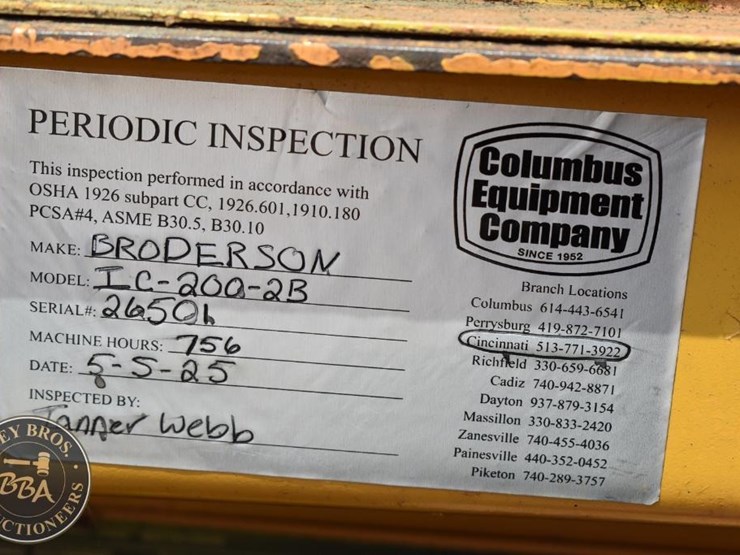 PERIODIC INSPECTION
This inspection performed in accordance with
OSHA 1926 subpart CC, 1926.601,1910.180
PCSA#4, ASME B30.5, B30.10
MAKE: BRODERSON
MODEL: IC-200-2B
SERIAL#: 26501
MACHINE HOURS: 756
DATE: 5-5-25
INSPECTED BY:
Tanner Webb
Columbus
Equipment
Company
SINCE 1952
Branch Locations
Columbus 614-443-6541
Perrysburg 419-872-7101
Cincinnati 513-771-3922
Richfield 330-659-6681
Cadiz 740-942-8871
Dayton 937-879-3154
Massillon 330-833-2420
Zanesville 740-455-4036
Painesville 440-352-0452
Piketon 740-289-3757
EY BROS.
BBA
CTIONEERS